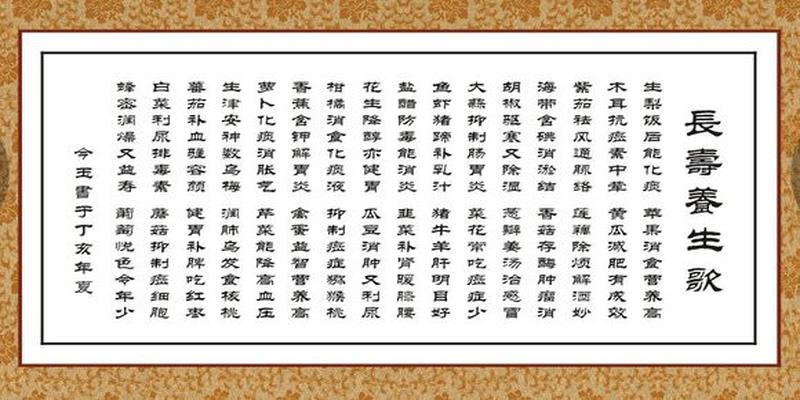 長壽養生歌
生梨饭后能化痰 苹果消食营养高
木耳抗癌素中荤 黄瓜减肥有成效
紫茄祛风通脉络 莲藕除烦解酒妙
海带含碘消淤结 香菇存酶肿瘤消
胡椒驱寒又除湿 葱辣姜汤治感冒
大蒜抑制肠胃炎 菜花常吃癌症少
鱼虾猪蹄补乳汁 猪牛羊肝明目好
盐醋防毒能消炎 韭菜补肾暖膝腰
花生降醇亦健胃 瓜豆消肿又利尿
柑橘消食化痰液 抑制癌症猕猴桃
香蕉含钾解胃炎 禽蛋益智营养高
萝卜化痰消胀气 芹菜能降高血压
生津安神数乌梅 润肺乌发食核桃
蕃茄补血驻容颜 健胃补脾吃红枣
白菜利尿排毒素 蘑菇抑制癌细胞
蜂蜜润燥又益寿 葡萄悦色令年少
今玉書于丁亥年夏